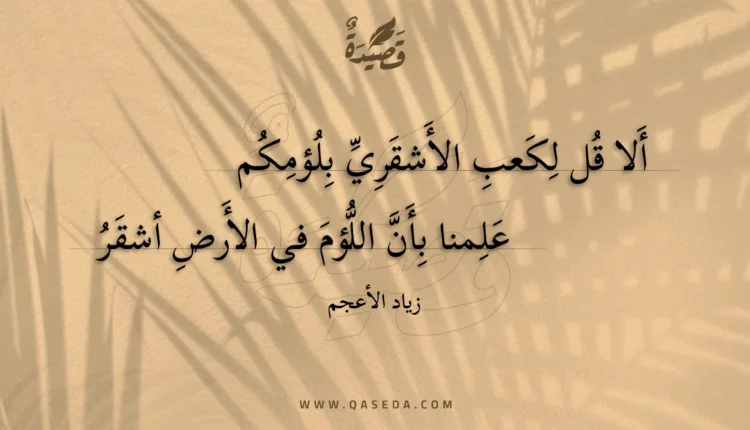 قَصِيدَةٌ
أَلا قُل لِكَعبِ الأَشقَرِيِّ بِلُؤمِكُم
عَلِمنا بِأَنَّ اللُّؤمَ في الأَرضِ أشقَرُ
زياد الأعجم
WWW.QASEDA.COM